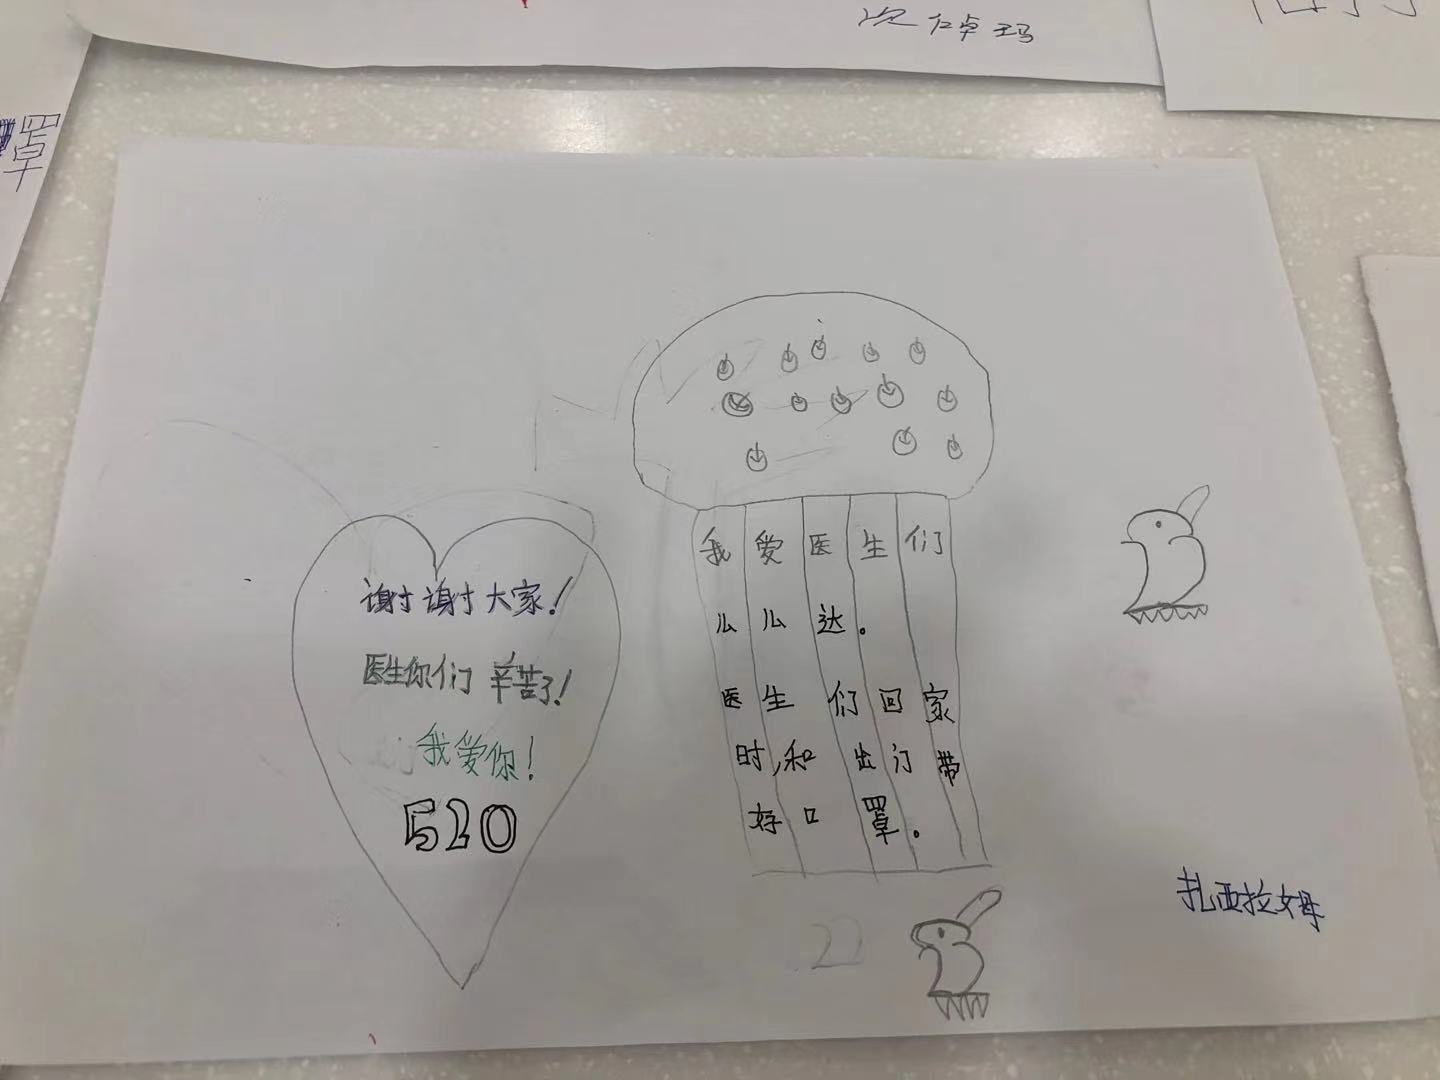 次仁卓玛
罩
谢谢大家！
医生你们辛苦了！
我爱你！
520
我爱医生们
么么达。
医生们回家
时，和出门带
好口罩。
扎西拉姆